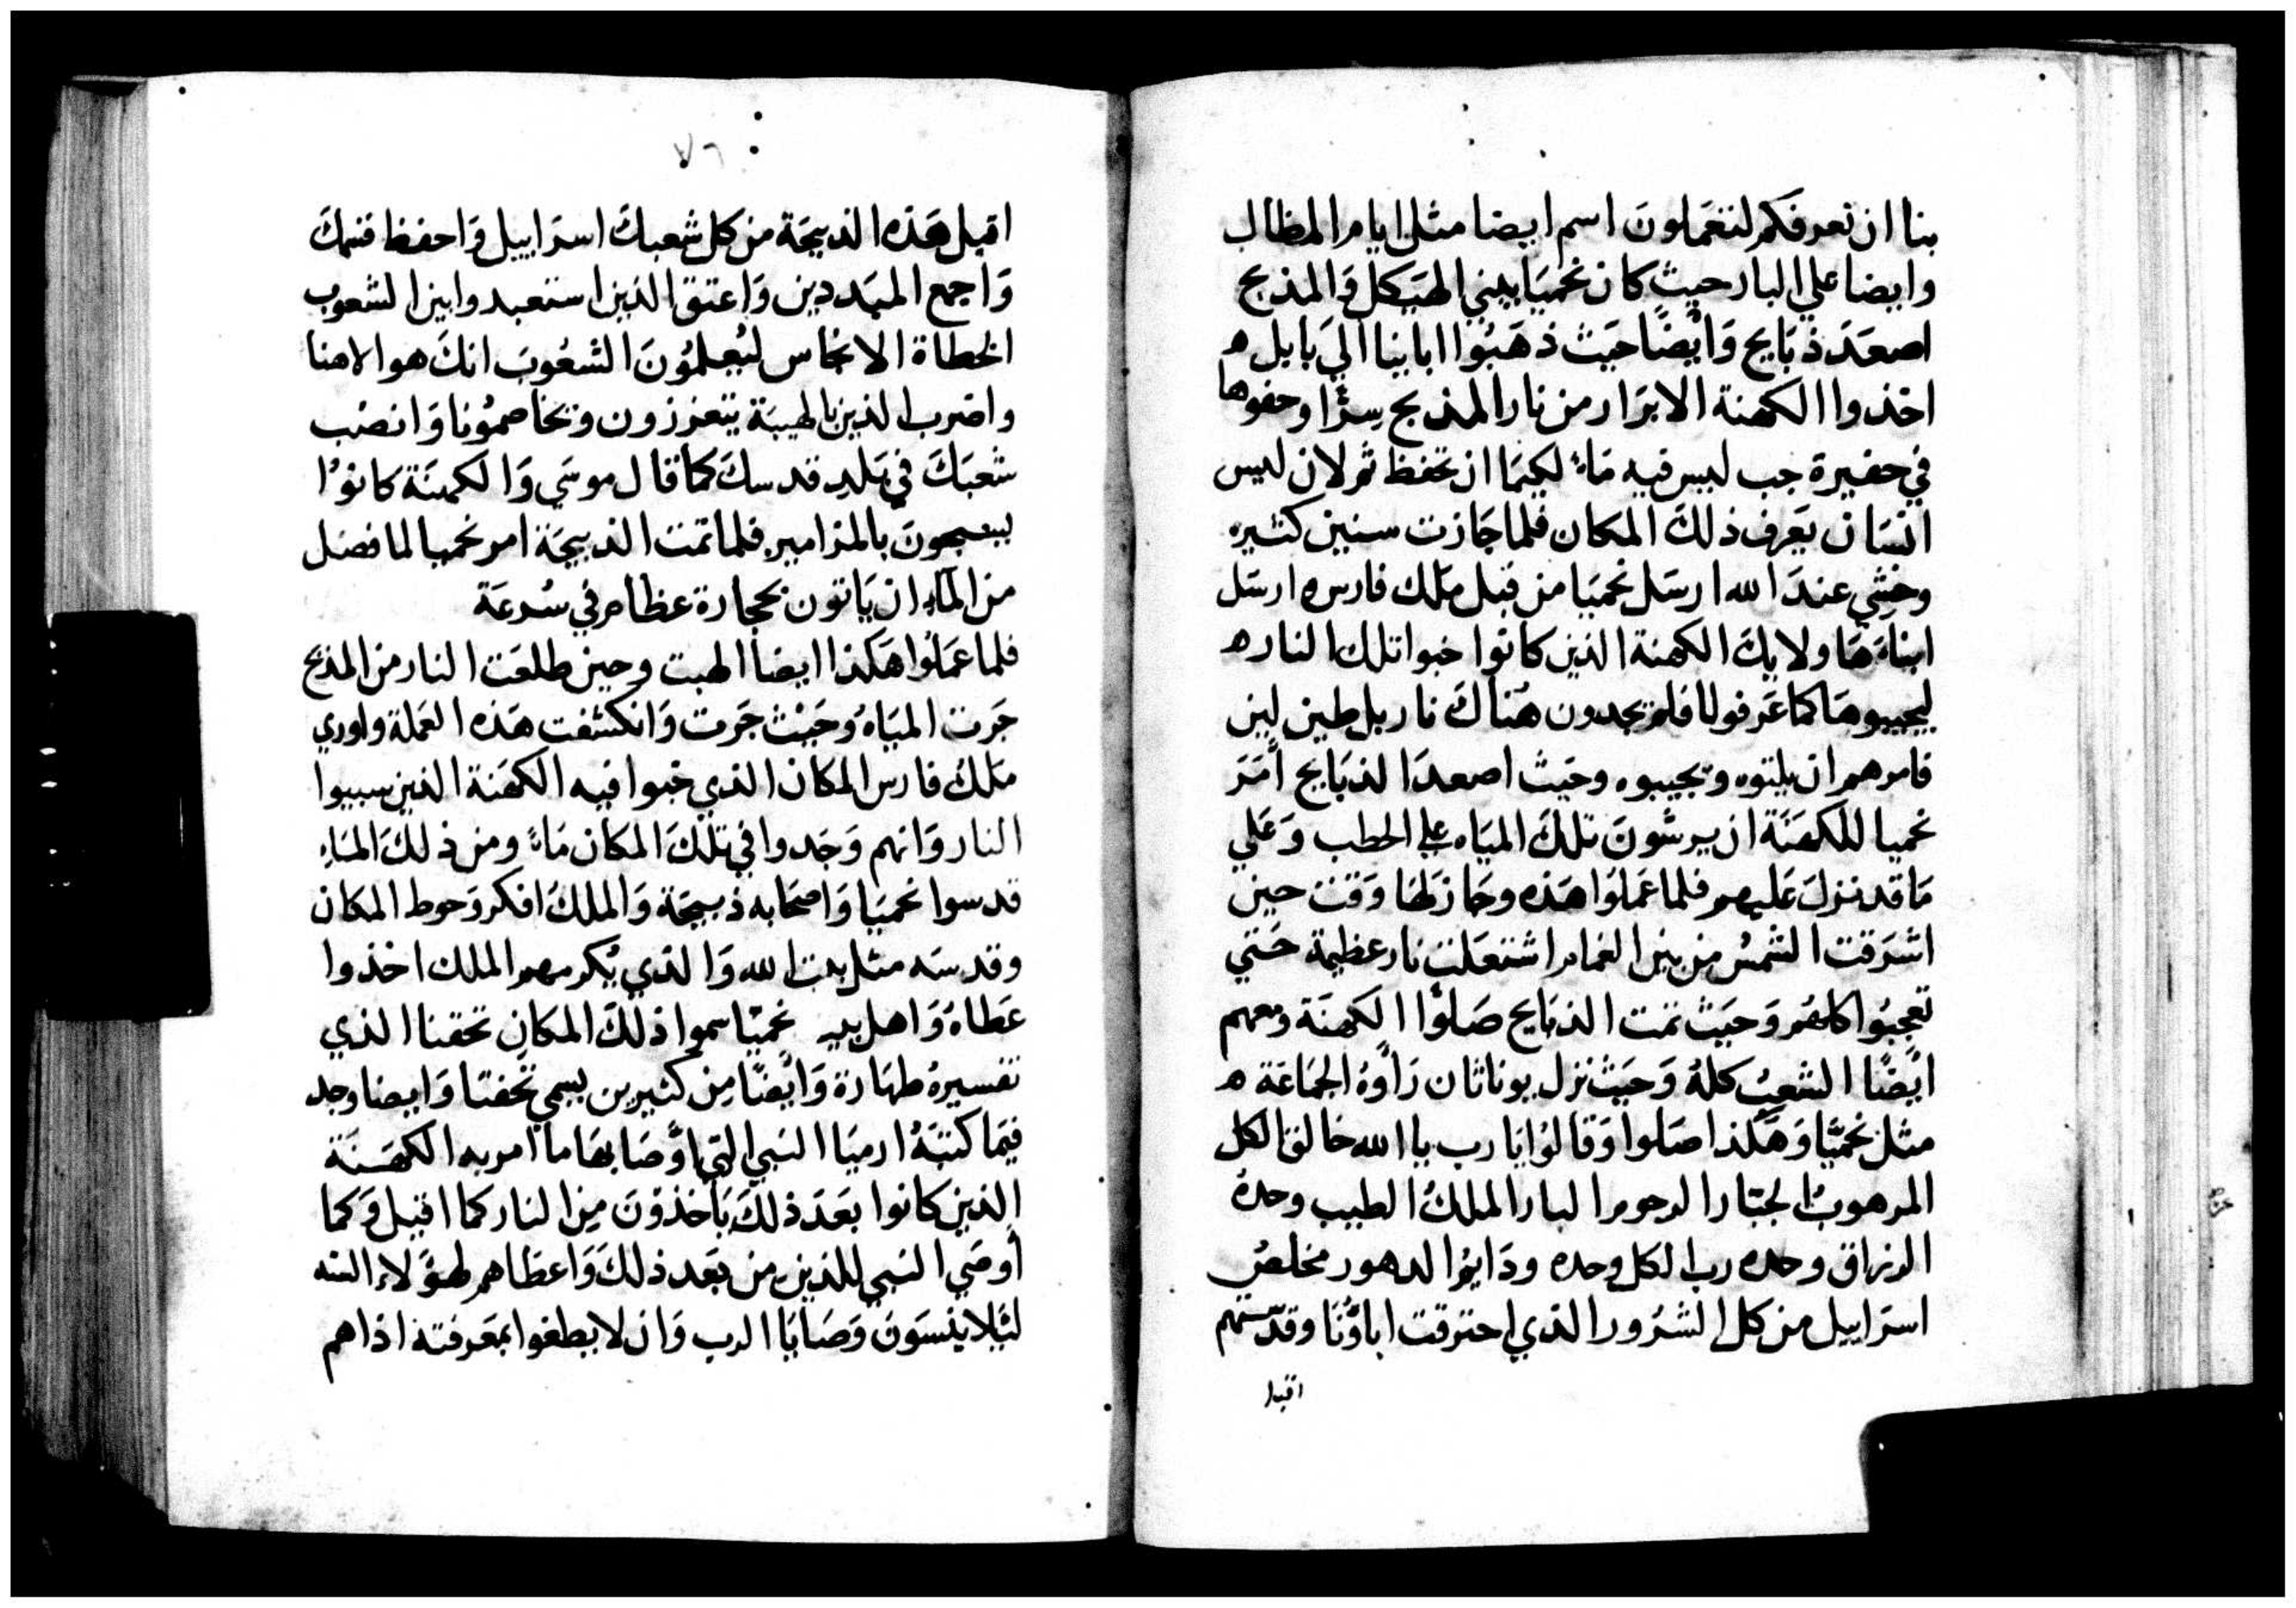 بنا ان نعرفكم لتعملون اسم ايضا مثل ايام المظال
وايضا علي البار حيث كان نحميا يبني الهيكل والمذبح
اصعَدَ ذبَايح وَايْضًا حيَث ذهَبُوا اباينا اليَ بَابل ه
اخذوا الكهنة الابرَار من نار المذبح سرًا وخفوها
في حفيرة جب ليس فيه مَاءً لكيمَا ان تحفظ ثم لان ليس
انسَان يَعرف ذلكَ المكان فلما جَازت سنين كثيره
وخشي عندَ الله ارسَل نحميَا من قبل ملك فارس ه ارسَل
ابناءَ هَاولايكَ الكهنة الذين كانوا خبوا تلك النار ه
ليجيبوهَا كما عَرفولنا فلم يجدون هُناكَ نار بل طين لين
فامرهم ان يلتوه ويجيبوه وحَيث اصعدَ الذبَايح أمَرَ
نحميا للكهَنَة ان يرشونَ تلكَ الميَاه علي الحطب وَعَلي
مَا قد نزلَ عَليهم فلما عَملوَا هَذه وجَاز لهَا وَقت حين
اشرَقت الشمسُ من بين الغمام اشتعَلت نار عظيمة حَتي
تعجبُوا كلهُم وَحيَث تمت الذبَايح صَلوُا الكهنَة ومعهم
ايْضًا الشعبُ كلهُ وَحيَث نزل يوناثان رَاوهُ الجمَاعَة ه
مثل نحميَا وَهَكذا صَلوا وَقالوُا يا رب يا الله خالق الكل
المرهوبُ الجبَار الرحوم البار الملكُ الطيب وحدهُ
الرزاق وحده رب الكل وحده ودَايمُ الدهور مخلصُ
اسرَاييل من كل الشرُور الذي احترقت اباؤُنَا وقدسَهم
اقبل
٧٦
اقبل هَذه الذبيحَة من كل شعبكَ اسرَاييل وَاحفظ قسمكَ
وَاجمع المبَددين وَاعتق الذين استعبدوا بين الشعوب
الخطاة الانجاس ليُعلموُنَ الشعُوبَ انكَ هو الاهنا
واضرب الذين بالهيبَة يتعززون ويخاصموُنا وَانصَب
شعبَكَ في بَلدِ قدسكَ كما قال موسَي وَالكهنَة كانوُا
يسبحونَ بالمزامير فلما تمت الذبيحَة امر نحميا لما فضَل
من الماءِ ان يَاتون بحجارة عظام في سُرعَة
فلما عمَلوُا هَكذا ايضا الهبت وحين طلعَت النار من المذبح
جَرت الميَاهُ وحَيْث جَرت وَانكشفت هَذه العَملة واوري
ملكُ فارس المكان الذي خبوا فيه الكهَنة الذين سبيوا
النار وَانهم وَجَدوا في تلكَ المكان مَاءً ومن ذلكَ المَاءِ
قدسوا نحميَا وَاصحَابه ذبيحَة وَالملكُ افكر وَحوط المكان
وقدسَه مثل بيت الله وَالذي يُكرمهم الملك اخذوا
عَطَاهُ وَاهل بيه نحميَا سموا ذلكَ المكانِ تحقنا الذي
تفسيرهُ طهَارة وَايضًا من كثيرين يسمي تحَفتا وَايضا وجد
فيَما كتبَهُ ارميَا النبي التي اوْصَا بهَا ما امر به الكهَنَة
الذين كانوا بعَدَ ذلكَ يَأخذوُنَ مِن النار كما اقبل وَكما
أوصَي النبي للذين من بَعد ذلكَ وَاعطاهم لهؤلاء السنه
لئلا ينسَونَ وَصَايَا الرب وَان لا يطغوا بمعَرفته اذا هم